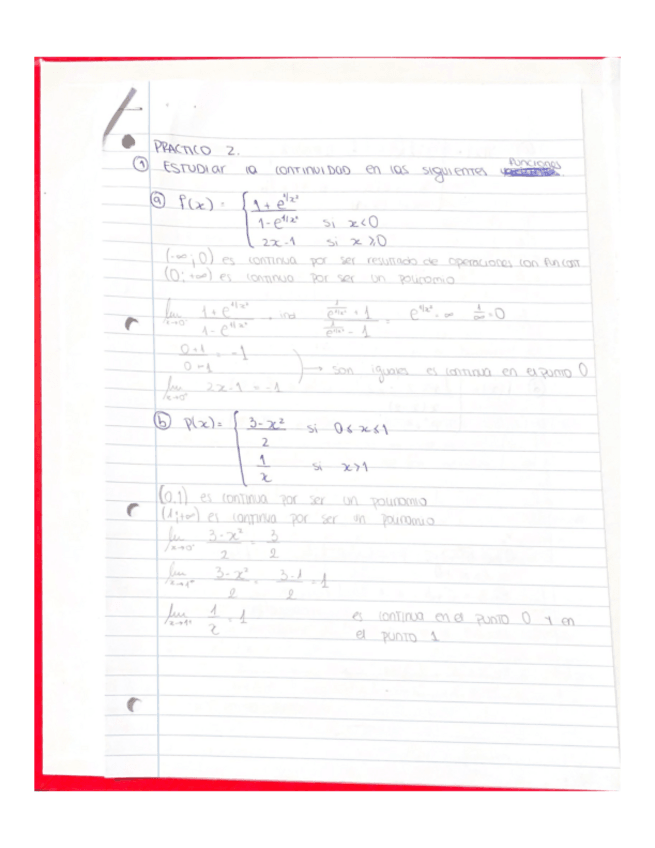 PRACTICO 2.
① ESTUDIAR la CONTINUIDAD en las siguientes Funciones
ⓐ f(x) = { 1 + e^1/x²
1 - e^1/x² si x<0
2x-1 si x≥0
(-∞; 0) es continua por ser resultado de operaciones con fun cont.
(0; +∞) es continua por ser un polinomio
lim x→0⁻ 1 + e^1/x² / 1 - e^1/x² = ind 1/e^1/x² + 1 / 1/e^1/x² - 1 e^1/x² = ∞ 1/∞ = 0
0+1 / 0-1 = -1
→ son iguales es continua en el punto 0
lim x→0⁺ 2x-1 = -1
ⓑ f(x) = { 3-x² / 2 si 0≤x≤1
1/x si x>1
(0,1) es continua por ser un polinomio
(1;+∞) es continua por ser un polinomio
lim x→0⁺ 3-x² / 2 = 3/2
lim x→1⁻ 3-x² / 2 = 3-1 / 2 = 1
lim x→1⁺ 1/x = 1 es continua en el punto 0 y en
el punto 1